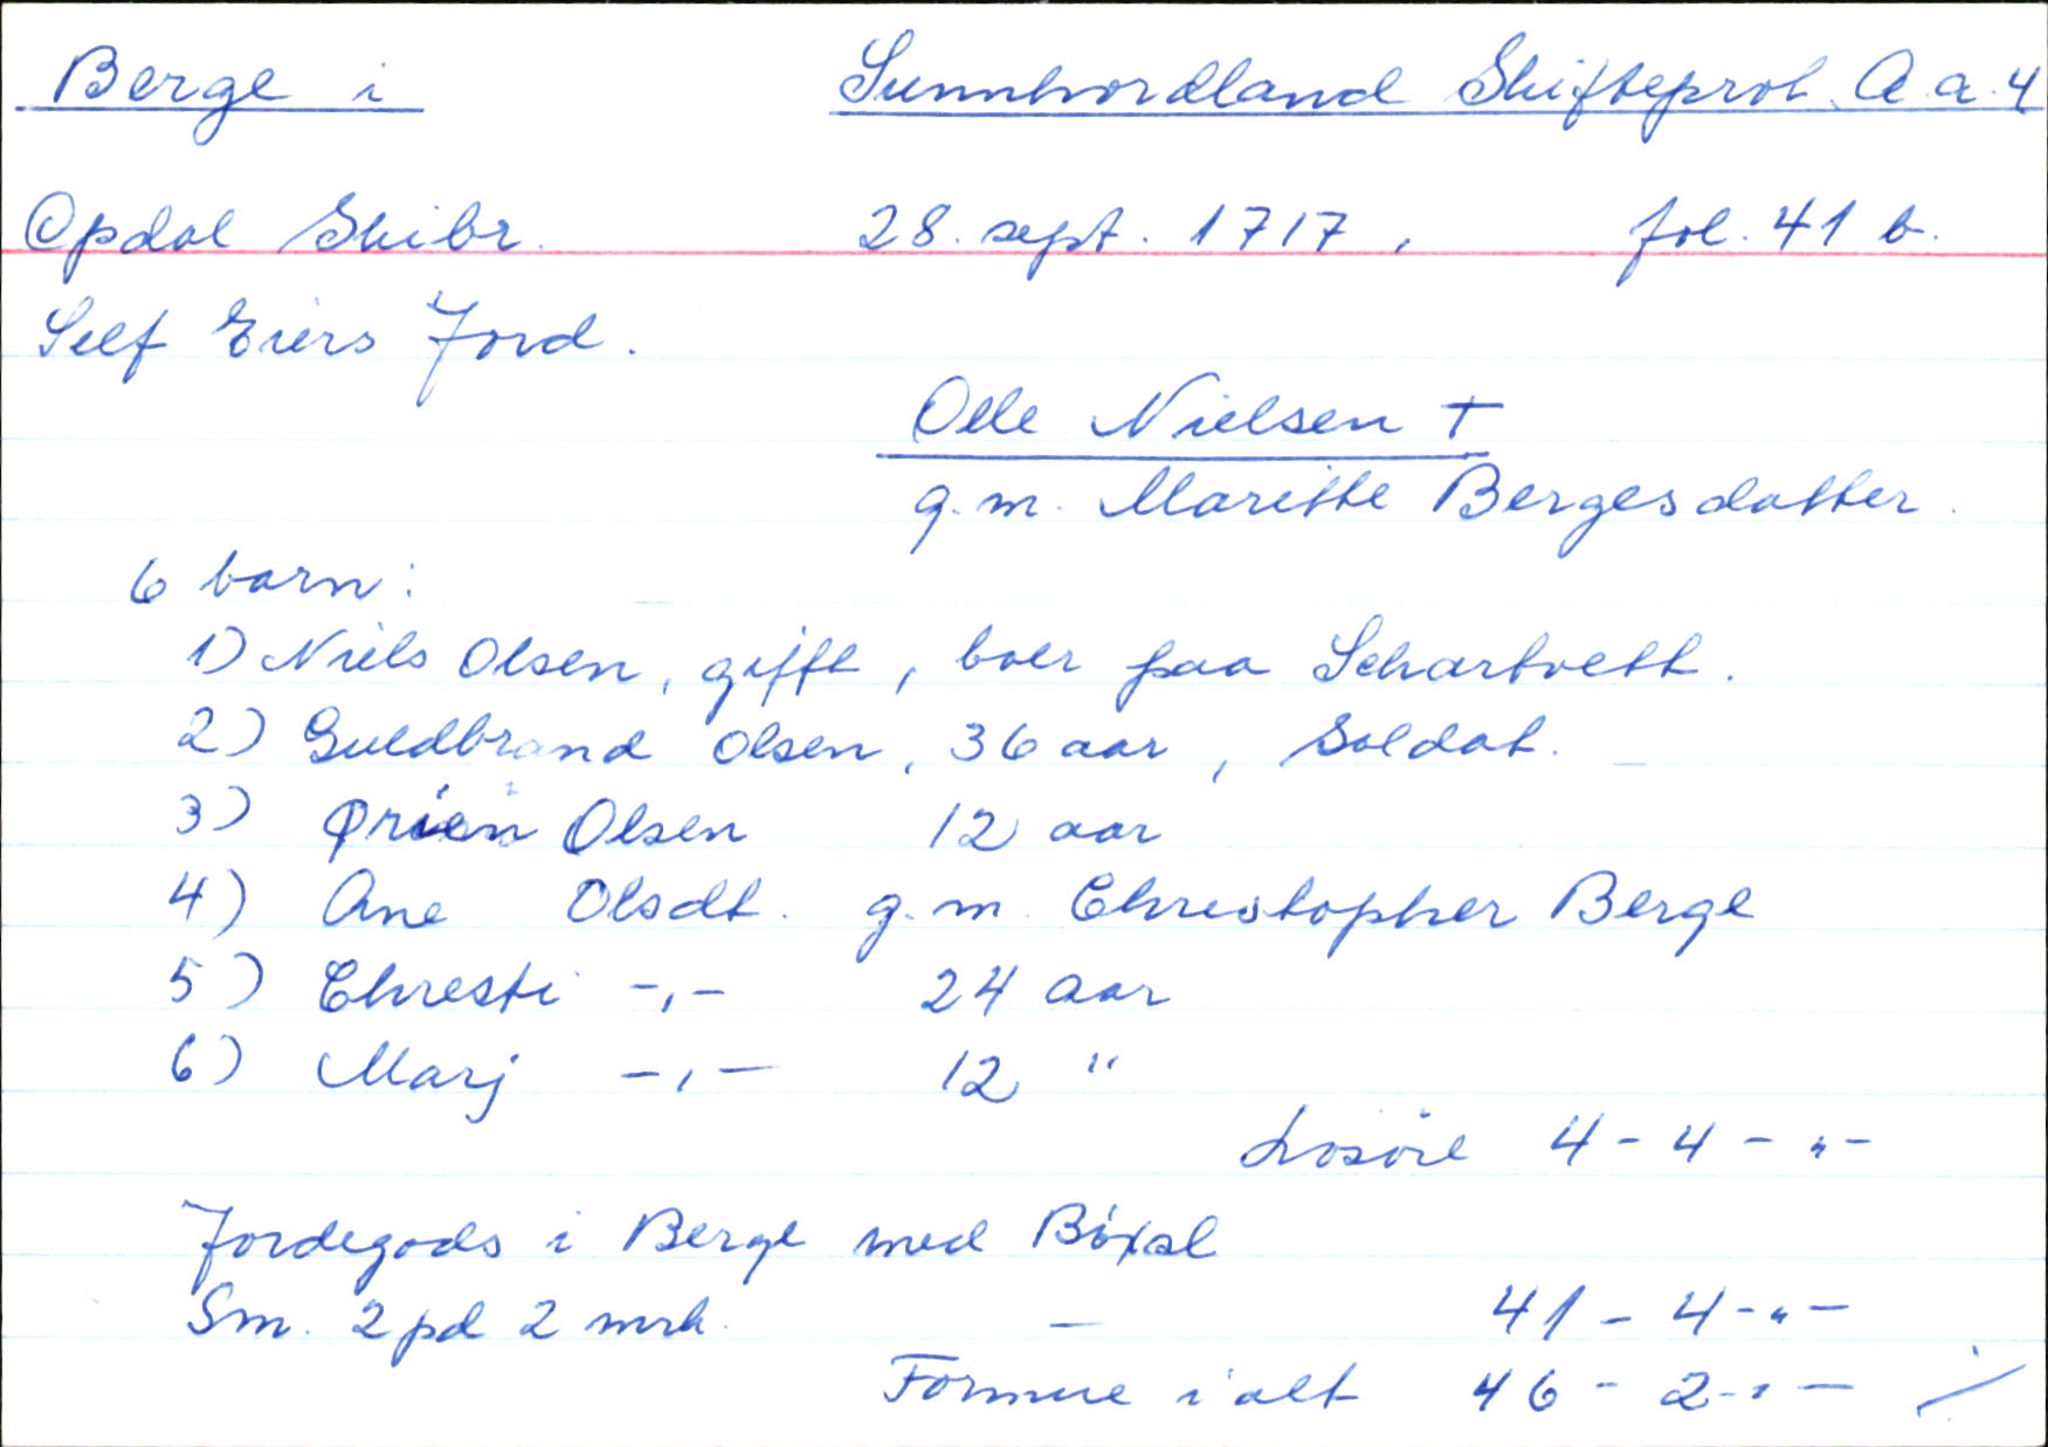 Berge i Sunnhordland Skifteprot. A.a.4
Opdal Skibr. 28. sept. 1717, fol. 41 b.
Self Eiers Jord.
Olle Nielsen †
g.m. Maritte Bergesdatter.
6 barn:
1) Niels Olsen, gifft, boer paa Schartvett.
2) Guldbrand Olsen, 36 aar, Soldat.
3) Ørien Olsen 12 aar
4) Ane Olsdt. g.m. Christopher Berge
5) Chresti -,- 24 aar
6) Marj -,- 12 "
Losöre 4 - 4 - " -
Jordegods i Berge med Böxel
Sm. 2 pd 2 mrk. - 41 - 4 - " -
Formue i alt 46 - 2 - " -